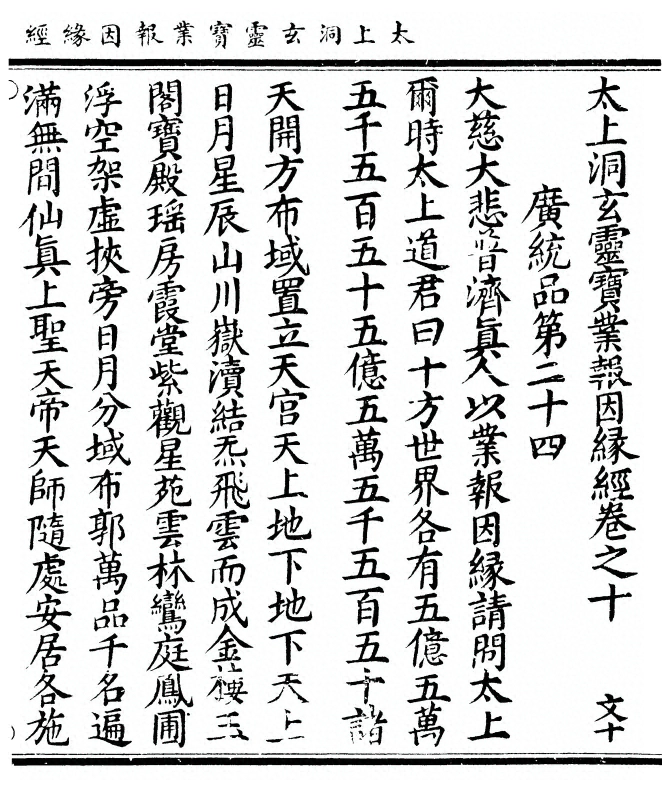 太上洞玄靈寶業報因緣經
太上洞玄靈寶業報因緣經卷之十 文十
廣統品第二十四
大慈大悲普濟眞人以業報因緣請問太上
爾時太上道君曰十方世界各有五億五萬
五千五百五十五億五萬五千五百五十諸
天開方布域置立天宮天上地下地下天上
日月星辰山川嶽瀆結炁飛雲而成金樓玉
閣寶殿瑶房霞堂紫觀星苑雲林鸞庭鳳圃
浮空架虛挾旁日月分域布郭萬品千名遍
滿無間仙眞上聖天帝天師隨處安居各施